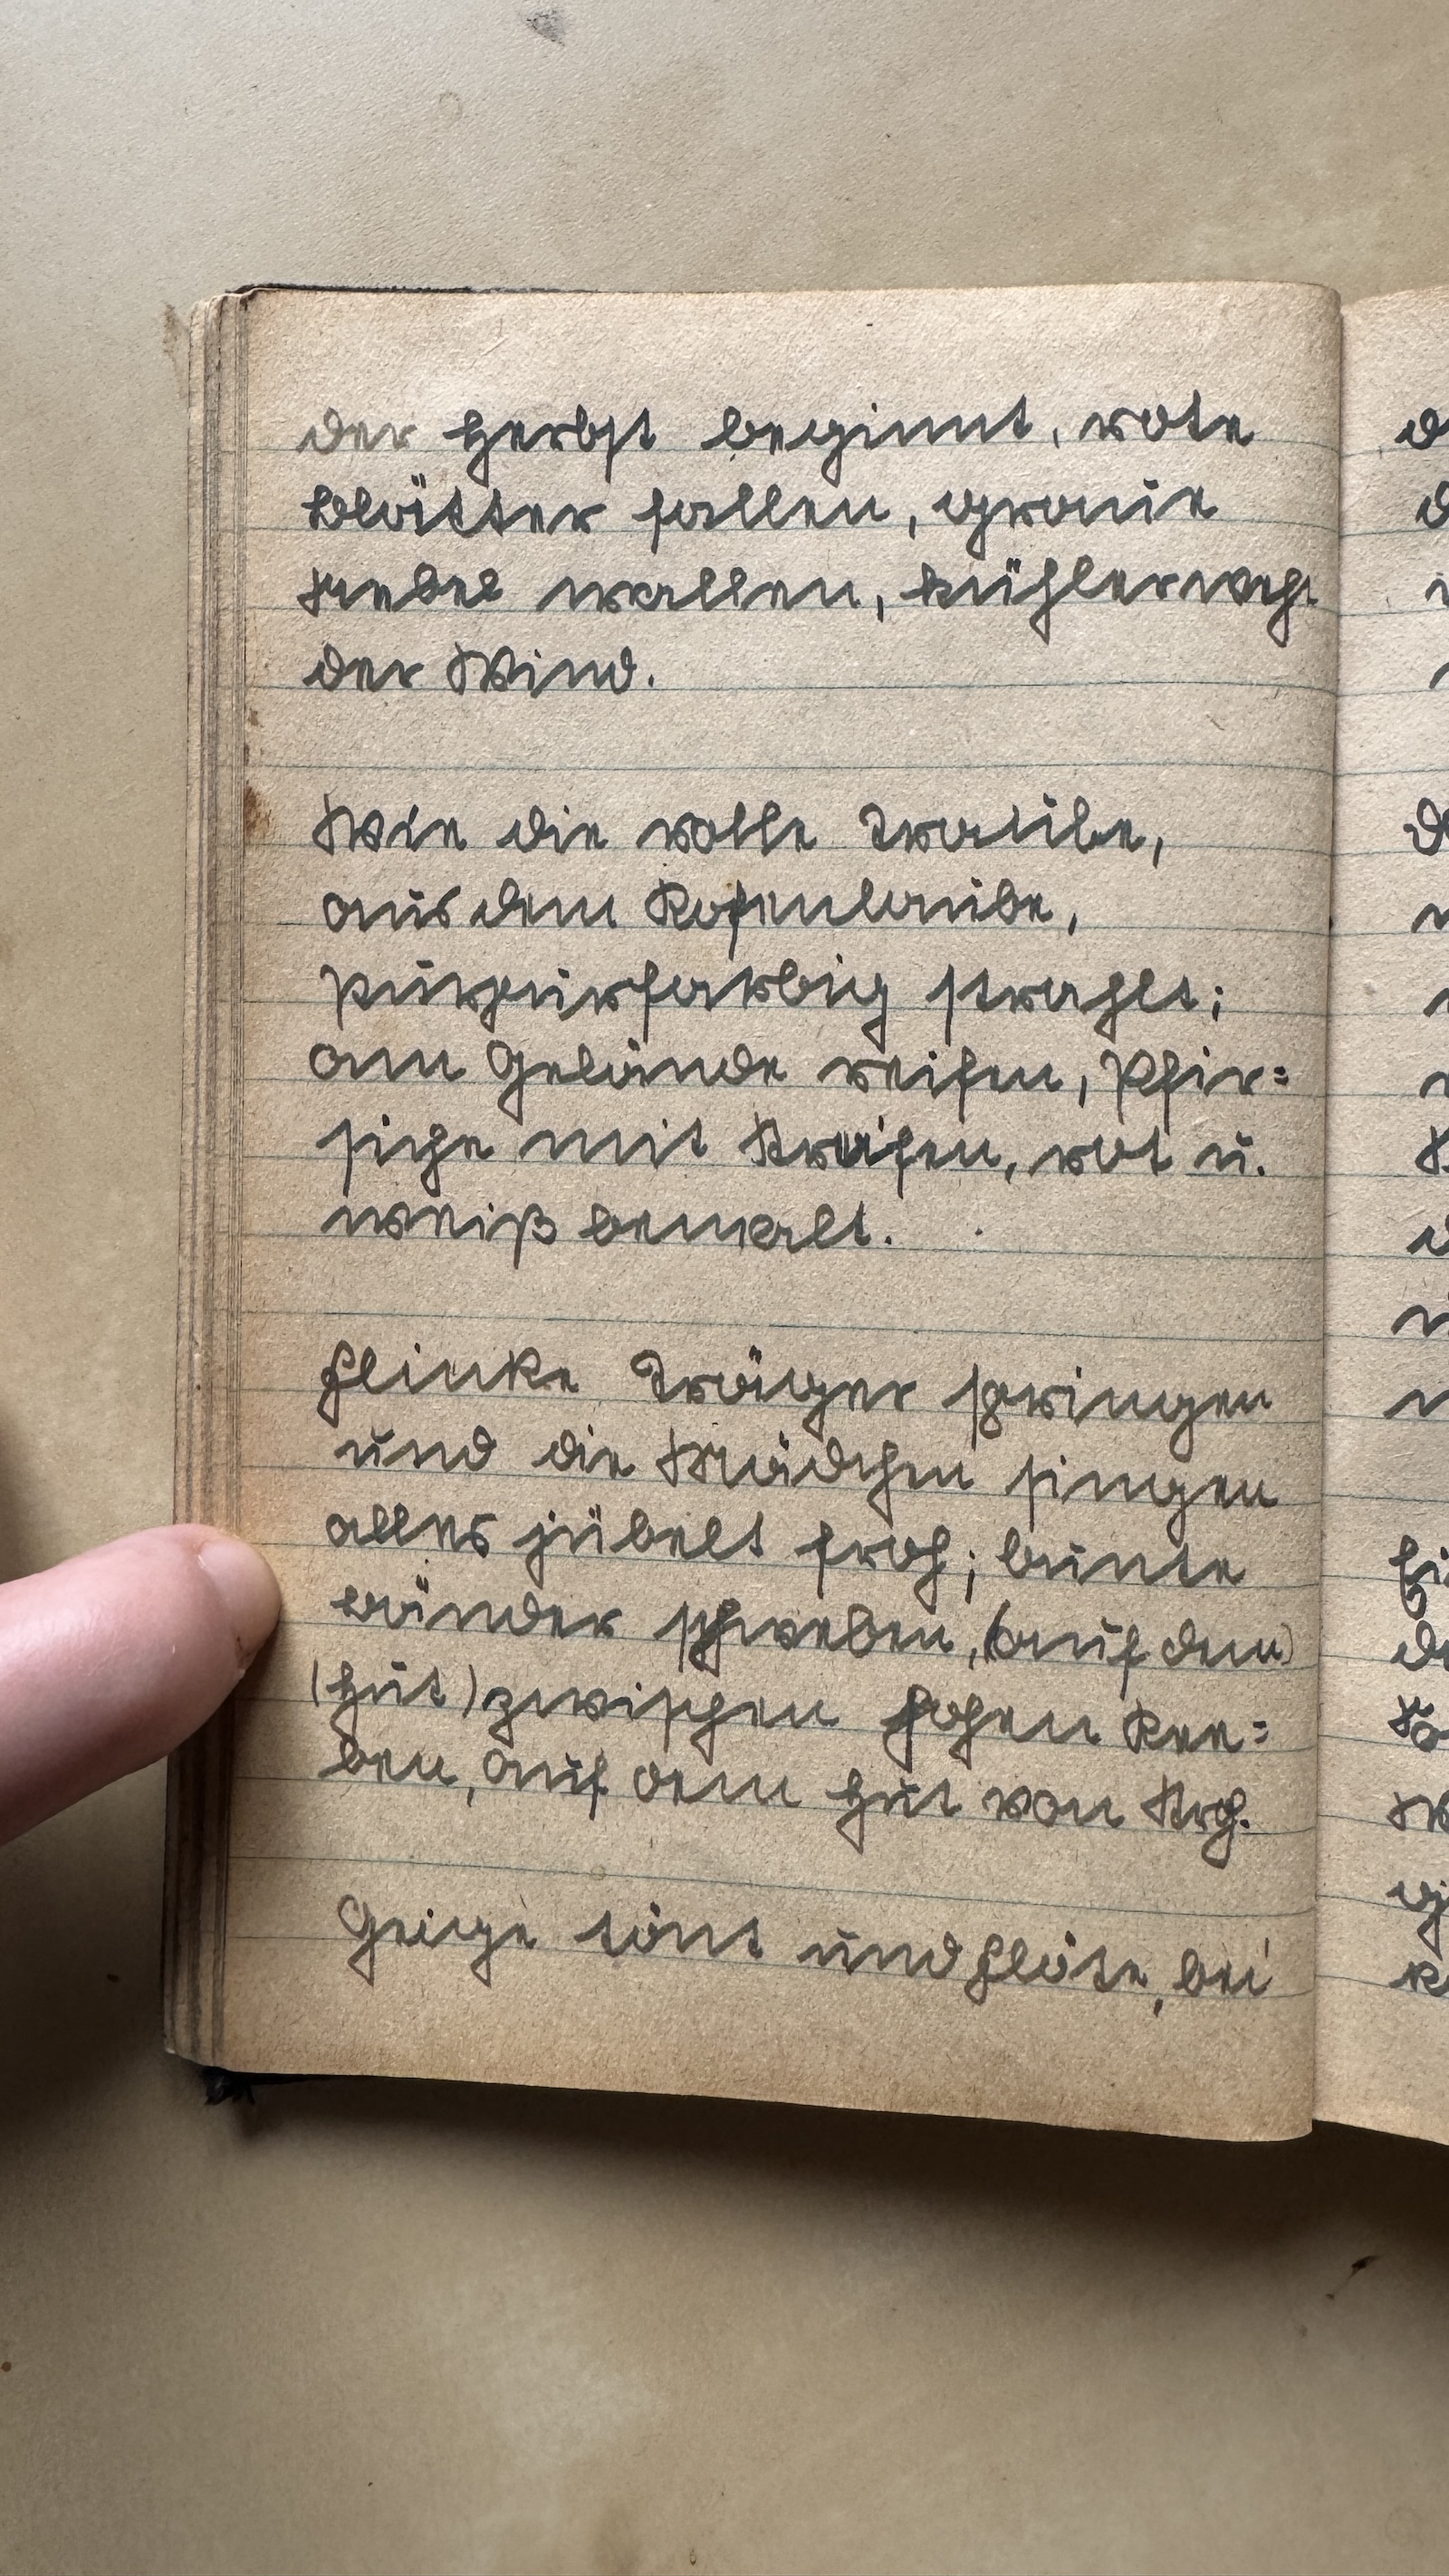 der Herbst beginnt, rote
Blätter fallen, graue
Nebel wallen, kühler weht
der Wind.
Wie die volle Traube,
aus dem Rebenlaube,
purpurfarbig strahlt;
am Gelände reifen, Pfir=
siche mit Streifen, rot u.
weiß bemalt.
Flinke Träger springen
und die Mädchen singen
alles jubelt froh; bunte
Bänder schweben, (auf dem)
(Hut) zwischen hohen Ree=
ben, auf dem Hut von Stroh.
Geige tönt und Flöte, bei